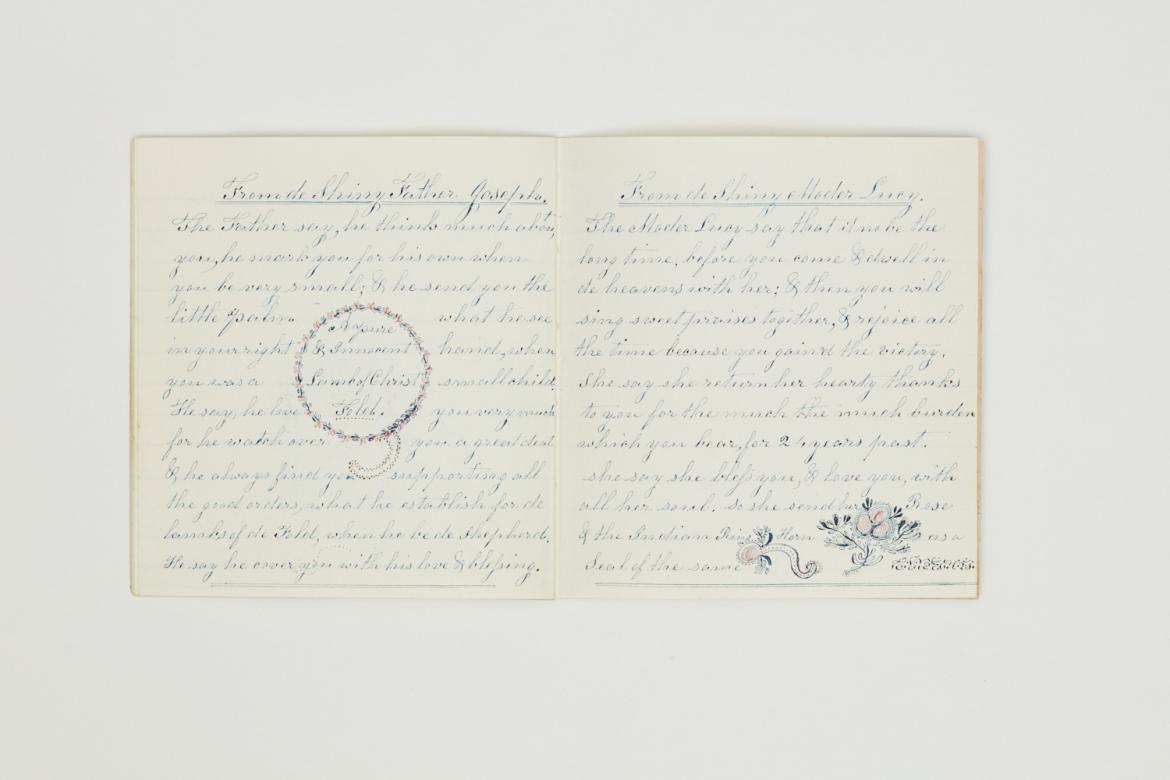 From de Shiny Father Joseph.
The Father say, he think much about
you, he mark you for his own when
you be very small; & he send you the
little psalm what he see
in your right hand, when
you was a small child.
He say, he love you very much
for he watch over you a great deal
& he always find you supporting all
the good orders, what he establish for de
lambs of de Fold, when he be de shepherd.
He say he cover you with his love & blessing.
A pure
& Innocent
Lamb of Christ
Fold.
From de Shiny Moder Lucy.
The Moder Lucy say that it no be the
long time, before you come & dwell in
de heavens with her; & then you will
sing sweet praises together, & rejoice all
the time because you gain'd the victory.
She say she return her hearty thanks
to you for the much the much burden
which you bear, for 24 years past.
she say she bless you, & love you, with
all her soul. so she send her Rose
& the Indian Horn as a
Seal of the same